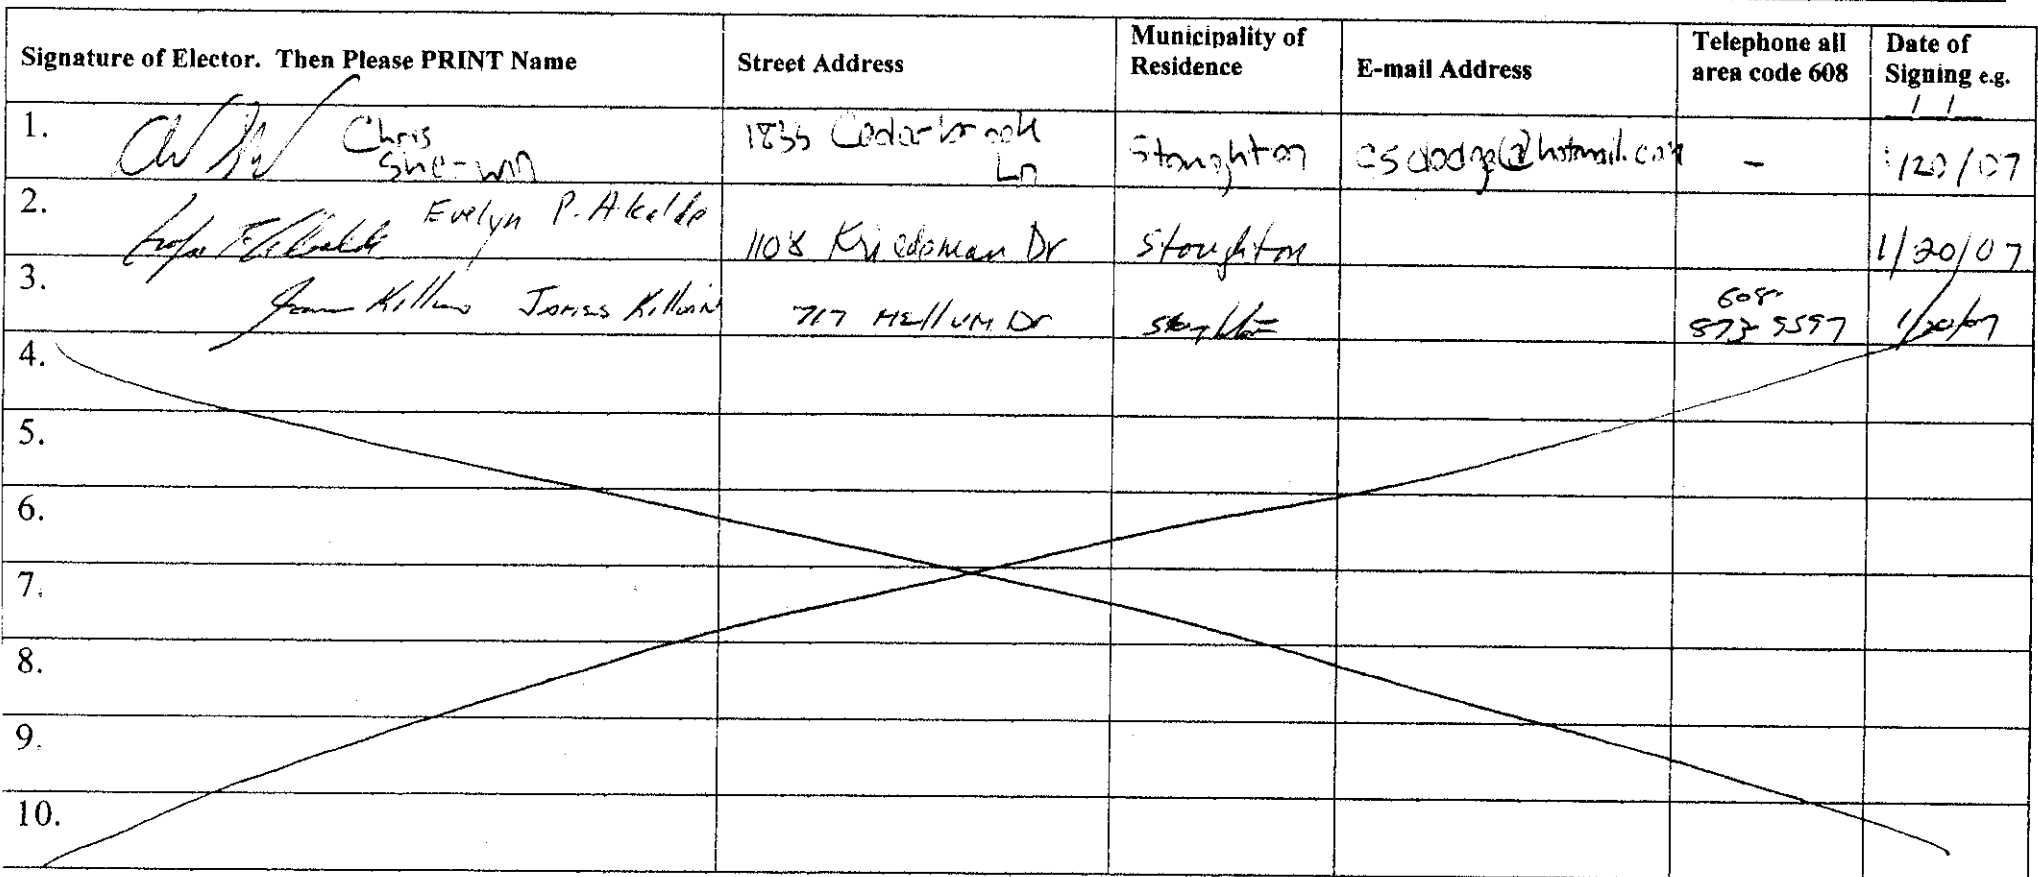 Signature of Elector. Then Please PRINT Name
Street Address
Municipality of
Residence
E-mail Address
Telephone all
area code 608
Date of
Signing e.g.
/ /
1.
Chris
Sherwin
1835 Cedarbrook
Ln
Stoughton
csdodge@hotmail.com
-
1/20/07
2.
Evelyn P. Alcalde
1108 Dr
Stoughton
1/20/07
3.
James
717 Hellum Dr
Stoughton
608-
873-9597
1/20/07
4.
5.
6.
7.
8.
9.
10.